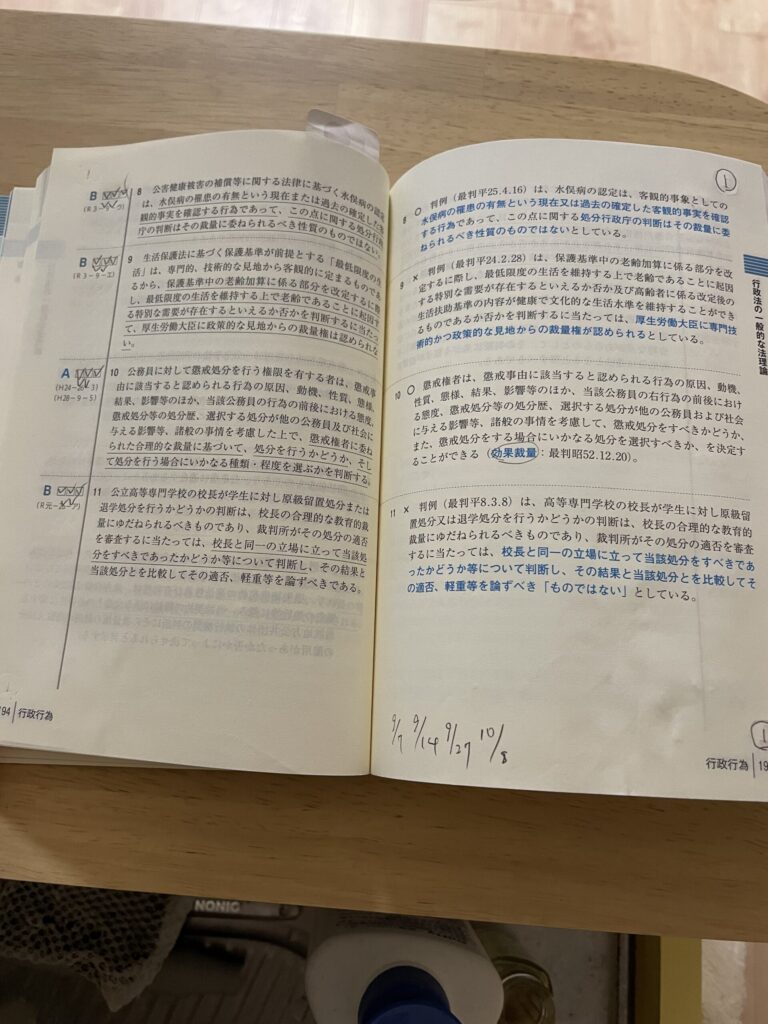 B
(R3-9-ウ)
8 公害健康被害の補償等に関する法律に基づく水俣病の認定
は、水俣病の罹患の有無という現在または過去の確定した客
観的事実を確認する行為であって、この点に関する処分行政
庁の判断はその裁量に委ねられるべき性質のものではない。
B
(R3-9-エ)
9 生活保護法に基づく保護基準が前提とする「最低限度の生
活」は、専門的、技術的な見地から客観的に定まるものであ
るから、保護基準中の老齢加算に係る部分を改定するに際
し、最低限度の生活を維持する上で老齢であることに起因す
る特別な需要が存在するといえるか否かを判断するに当たっ
て、厚生労働大臣に政策的な見地からの裁量権は認められな
い。
A
(H28-9-5)
10 公務員に対して懲戒処分を行う権限を有する者は、懲戒事
由に該当すると認められる行為の原因、動機、性質、態様、
結果、影響等のほか、当該公務員の行為の前後における態度、
懲戒処分等の処分歴、選択する処分が他の公務員及び社会に
与える影響等、諸般の事情を考慮した上で、懲戒権者に委ね
られた合理的な裁量に基づいて、処分を行うかどうか、そし
て処分を行う場合にいかなる種類・程度を選ぶかを判断する。
B
11 公立高等専門学校の校長が学生に対し原級留置処分または
退学処分を行うかどうかの判断は、校長の合理的な教育的裁
量にゆだねられるべきものであり、裁判所がその処分の適否
を審査するに当たっては、校長と同一の立場に立って当該処
分をすべきであったかどうか等について判断し、その結果と
当該処分とを比較してその適否、軽重等を論ずべきである。
194 行政行為
①
8 ○ 判例（最判平25.4.16）は、水俣病の認定は、客観的事象としての
水俣病の罹患の有無という現在又は過去の確定した客観的事実を確認
する行為であって、この点に関する処分行政庁の判断はその裁量に委
ねられるべき性質のものではないとしている。
9 × 判例（最判平24.2.28）は、保護基準中の老齢加算に係る部分を改
定するに際し、最低限度の生活を維持する上で老齢であることに起因
する特別な需要が存在するといえるか否か及び高齢者に係る改定後の
生活扶助基準の内容が健康で文化的な生活水準を維持することができ
るものであるか否かを判断するに当たっては、厚生労働大臣に専門技
術的かつ政策的な見地からの裁量権が認められるとしている。
10 ○ 懲戒権者は、懲戒事由に該当すると認められる行為の原因、動機、
性質、態様、結果、影響等のほか、当該公務員の右行為の前後におけ
る態度、懲戒処分等の処分歴、選択する処分が他の公務員および社会
に与える影響等、諸般の事情を考慮して、懲戒処分をすべきかどうか、
また、懲戒処分をする場合にいかなる処分を選択すべきか、を決定す
ることができる（効果裁量：最判昭52.12.20）。
11 × 判例（最判平8.3.8）は、高等専門学校の校長が学生に対し原級留
置処分又は退学処分を行うかどうかの判断は、校長の合理的な教育的
裁量にゆだねられるべきものであり、裁判所がその処分の適否を審査
するに当たっては、校長と同一の立場に立って当該処分をすべきであ
ったかどうか等について判断し、その結果と当該処分とを比較してそ
の適否、軽重等を論ずべき「ものではない」としている。
9/7 9/14 9/27 10/8
行政行為
行政法の一般的な法理論
NONIO